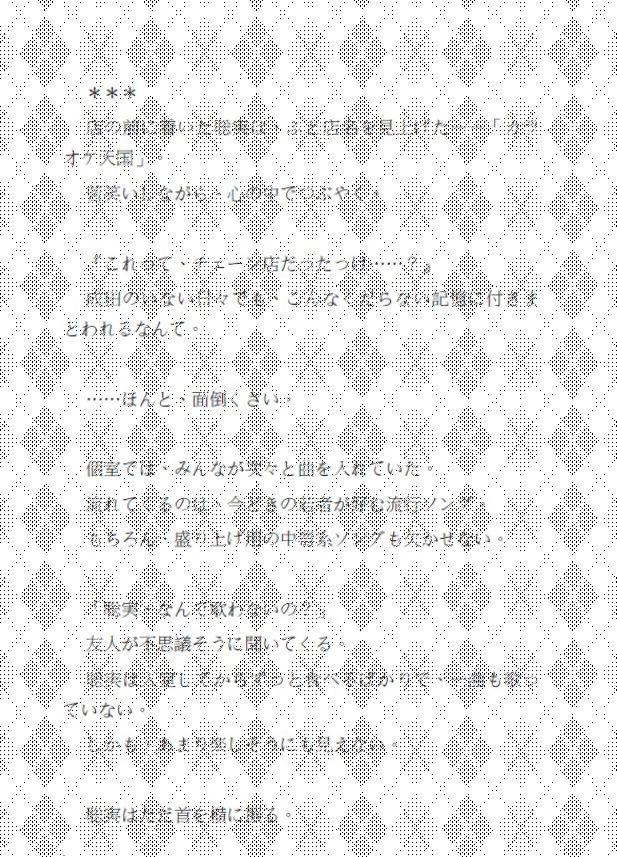 ***
店の前に着いた聡実は、ふと店名を見上げた——「カラ
オケ天国」。
苦笑いしながら、心の中でつぶやく。
『これって、チェーン店だったっけ……？』
成田のいない日々でも、こんなくだらない記憶に付きま
とわれるなんて。
……ほんと、面倒くさい。
個室では、みんなが次々と曲を入れていた。
流れてくるのは、今どきの若者が好む流行ソング。
もちろん、盛り上げ用の中二系ソングも欠かせない。
「聡実、なんで歌わないの？」
友人が不思議そうに聞いてくる。
聡実は入室してからずっと食べるばかりで、一曲も歌っ
ていない。
しかも、あまり楽しそうにも見えない。
聡実はただ首を横に振る。